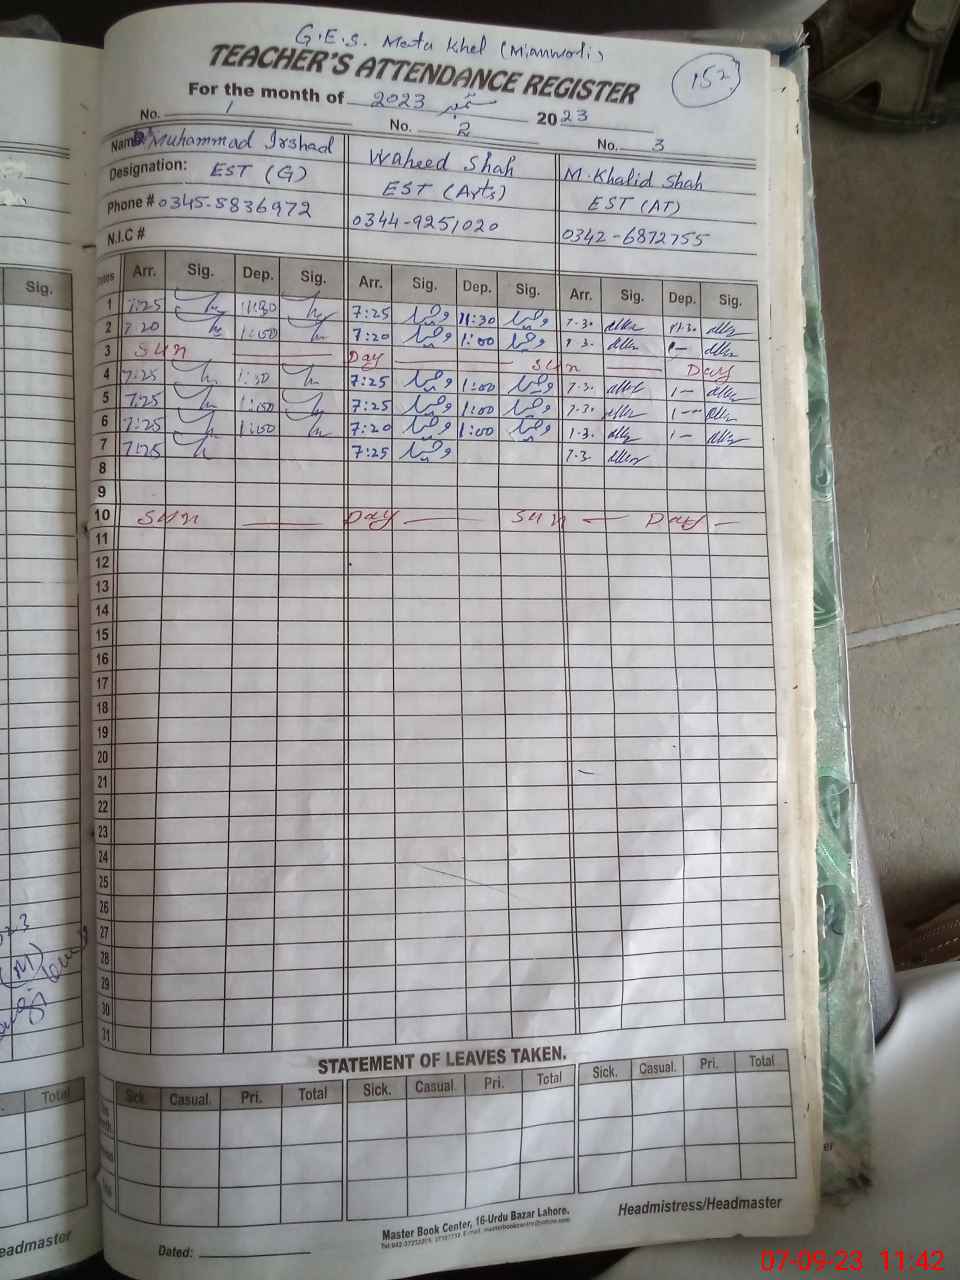 G.E.S. Mata Khel (Mianwali)
TEACHER'S ATTENDANCE REGISTER
152
For the month of 2023 ستمبر 2023
No. 1 No. 2 No. 3
Name Muhammad Irshad Waheed Shah M. Khalid Shah
Designation: EST (G) EST (Arts) EST (AT)
Phone # 0345-5836972 0344-9251020 0342-6872755
N.I.C #
Sig.
Dates Arr. Sig. Dep. Sig. Arr. Sig. Dep. Sig. Arr. Sig. Dep. Sig.
1 7:25 11:30 7:25 11:30 7.30 11.30
2 7:20 1:00 7:20 1:00 7.30 1—
3 Sun Day Sun Day
4 7:25 1:00 7:25 1:00 7.30 1—
5 7:25 1:00 7:25 1:00 7.30 1—
6 7:25 1:00 7:20 1:00 7.30 1—
7 7:25 7:25 7.30
8
9
10 Sun Day Sun Day
11
12
13
14
15
16
17
18
19
20
21
22
23
24
25
26
27
28
29
30
31
STATEMENT OF LEAVES TAKEN.
Total Sick. Casual. Pri. Total Sick. Casual. Pri. Total Sick. Casual. Pri. Total
Headmistress/Headmaster
Master Book Center, 16-Urdu Bazar Lahore.
eadmaster Dated:
07-09-23 11:42